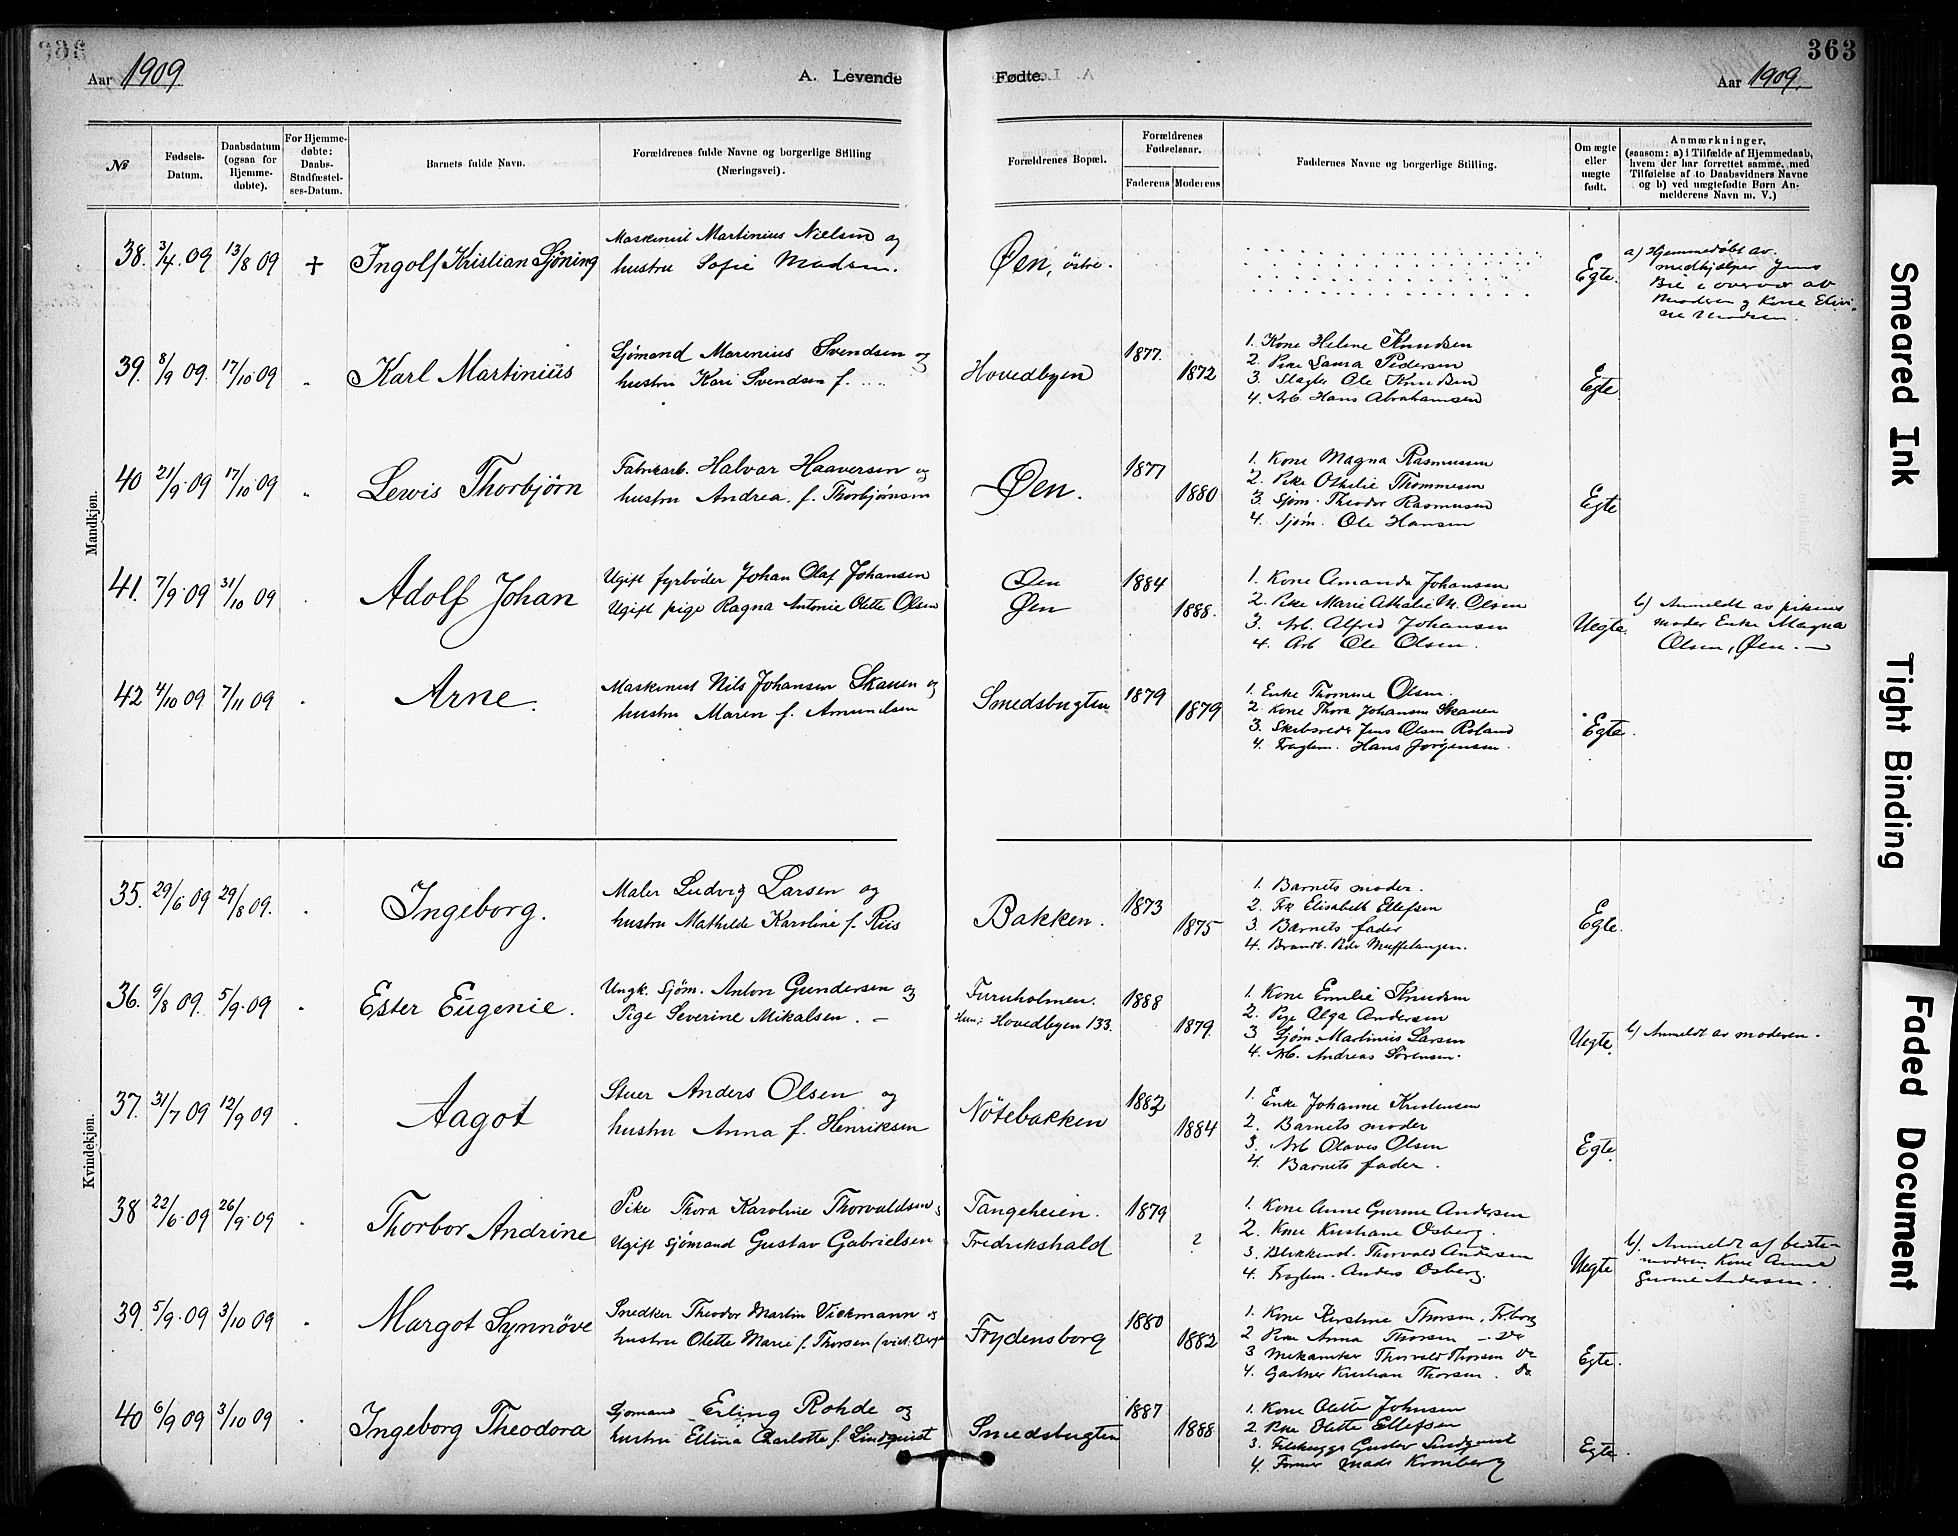 363
Aar 1909
A. Levende
Fødte.
Aar 1909.
№
Fødsels-Datum.
Daabsdatum (ogsaa for Hjemme-døbte).
For Hjemme-døbte: Daabs-Stadfæstel-ses-Datum.
Barnets fulde Navn.
Forældrenes fulde Navne og borgerlige Stilling (Næringsvei).
Forældrenes Bopæl.
Forældrenes Fødselsaar.
Faderens
Moderens
Faddernes Navne og borgerlige Stilling.
Om ægte eller uægte født.
Anmærkninger,
(saasom: a) i Tilfælde af Hjemmedaab,
hvem der har forrettet samme, med
Tilføielse af to Daabsvidners Navne
og b) ved uægtefødte Børn An-
melderens Navn m. V.)
Mandkjøn.
38. 3/4 09 13/8 09 + Ingolf Kristian Sjøning
Maskinist Martinius Nielsen og
hustru Sofie Madsen.
Øen, östre.
Egte.
a) Hjemmedøbt av
medhjælper Jens
Bie i overvær av
Moderen og Kone
39. 8/9 09. 17/10 09 „ Karl Martinius
Sjømand Marenius Svendsen og
hustru Kari Svendsen f. ....
Hovedbyen
1877. 1872
1. Kone Helene Knudsen
2. Pike Laura Pedersen
3. Slagter Ole Knudsen
4. Arb. Hans Abrahamsen
Egte
40 21/9 09 17/10 09 „ Lewis Thorbjørn
Fabrikarb. Halvar Haaversen og
hustru Andrea f. Thorbjørnsen
Øen.
1877 1880
1. Kone Magna Rasmussen
2. Pike Othilie Thommesen
3. Sjøm. Theodor Rasmusen
4. Sjøm. Ole Hansen
Egte
41. 7/9 09 31/10 09 Adolf Johan
Ugift fyrbøder Johan Olaf Johansen
Ugift pige Ragna Antonie Olette Olsen
Øen
Øen
1884 1888.
1. Kone Amanda Johansen
2. Pike Marie Athalie M. Olsen
3. Arb. Alfred Johansen
4. Arb Ole Olsen.
Uegte.
b) Anmeldt av pikens
moder Enke Magna
Olsen, Øen. —
42 4/10 09 7/11 09 Arne.
Maskinist Nils Johansen Skauen og
hustru Maren f. Amundsen
Smedsbugten
1879 1879
1. Enke Thomine Olsen.
2. Kone Thora Johansen Skauen
3. Skibsreder Jens Olsen Roland
4. Fragtem. Hans Jørgensen.
Egte.
Kvindekjøn.
35. 29/6 09 29/8 09. Ingeborg.
Maler Ludvig Larsen og
hustru Mathilde Karoline f. Riis
Bakken.
1873 1875
1. Barnets moder.
2. Frk Elisabeth Ellefsen
3. Barnets fader
4. Brandt. Peder Muffelangen.
Egte.
36. 9/8 09. 5/9 09 Ester Eugenie.
Ungk. sjøm. Anton Gundersen og
Pige Severine Mikalsen. —
Furuholmen.
Hun: Hovedbyen 133.
1888 1879.
1. Kone Emilie Knudsen
2. Pige Olga Andersen
3 Sjøm. Martinius Larsen
4. Arb. Andreas Sørensen.
Uegte.
b) Anmeldt av moderen.
37. 31/7 09 12/9 09 Aagot
Stuer Anders Olsen og
hustru Anna f. Henriksen
Nötebakken
1882 1884
1. Enke Johanne Kristensen
2. Barnets moder
3. Arb Olaves Olsen
4. Barnets fader.
Egte.
38 22/6 09 26/9 09 Thorbor Andrine
Pike Thora Karoline Thorvaldsen
Ugift sjømand Gustav Gabrielsen
Tangeheien.
Fredrikshald
1879 ?
1. Kone Anne Gurine Andersen
2. Kone Kristiane Osberg.
3. Blikkensl. Thorvald Andersen
4. Fragtem. Anders Osberg.
Uegte
b). Anmeldt af beste-
moderen Kone Anne
Gurine Andersen.
39. 5/9 09 3/10 09 Margot Synnöve
Snedker Theodor Martin Vickmann og
hustru Olette Marie f. Thorsen
Frydensborg
1880 1882
1. Kone Kirstine Thorsen, Fr.borg
2 Pike Anna Thorsen — Do
3 Mekaniker Thorvald Thorsen Do
4. Gartner Kristian Thorsen. Do.
Egte.
40 6/9 09 3/10 09 Ingeborg Theodora
Sjømand Erling Rohde og
hustru Ellina Charlotte f. Lindquist
Smedsbugten
1887 1888
1. Kone Olette Johnsen
2. Pike Olette Ellefsen
3. Filehugger Gustav Lindquist
4. Former Mads Kronberg
Egte.
Smeared Ink
Tight Binding
Faded Document